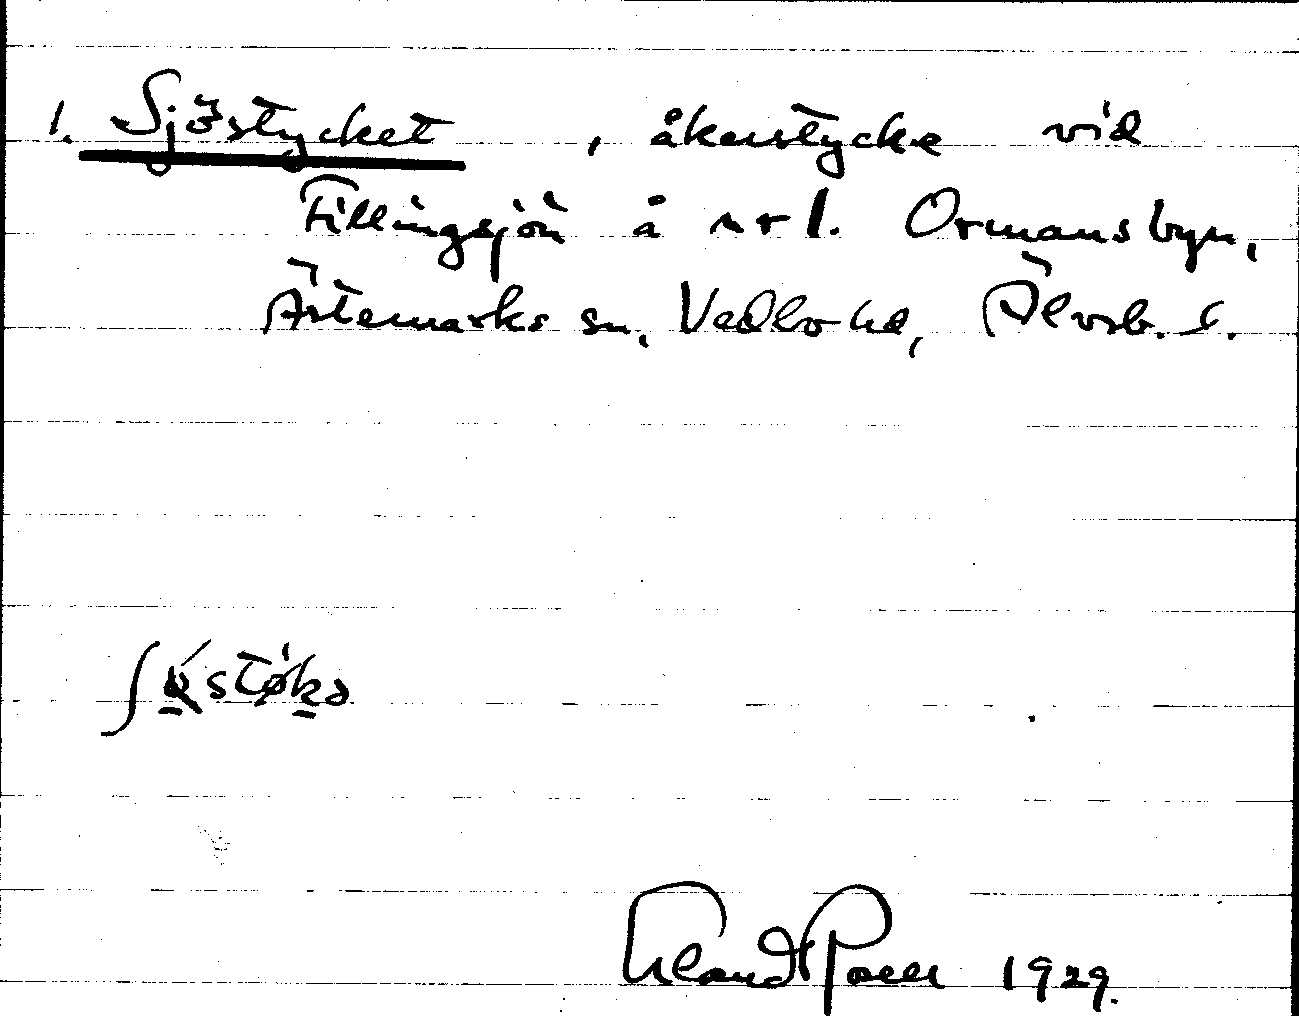 1. Sjöstycket, åkerstycke vid
Tillingsjön å nr 1. Ormansbyn,
Ärtemarks sn, Vedbo hd, Älvsb. l.
1929.